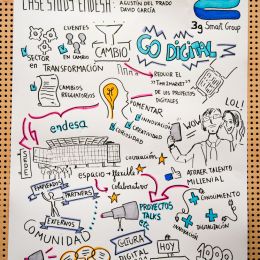 CASE STUDY ENDESA:
AGUSTÍN DEL PRADO
DAVID GARCÍA
3g Smart Group
CLIENTES
EN CAMBIO
CAMBIO
GO DIGITAL
SECTOR
EN TRANSFORMACIÓN
CAMBIOS
REGULATORIOS
REDUCIR EL
"TIME2MARKET"
DE LOS PROYECTOS
DIGITALES
FOMENTAR
INNOVACIÓN
CREATIVIDAD
CURIOSIDAD
WOW
LOL!
endesa
espacio + flexible
colaborativo
ATRAER TALENTO
MILLENIAL
EMPLEADOS
PARTNERS
EXTERNOS
COMUNIDAD
PROYECTOS
TALKS
CONOCIMIENTO
INNOVACIÓN
DIGITALIZACIÓN
DIGITAL
HOY
1000